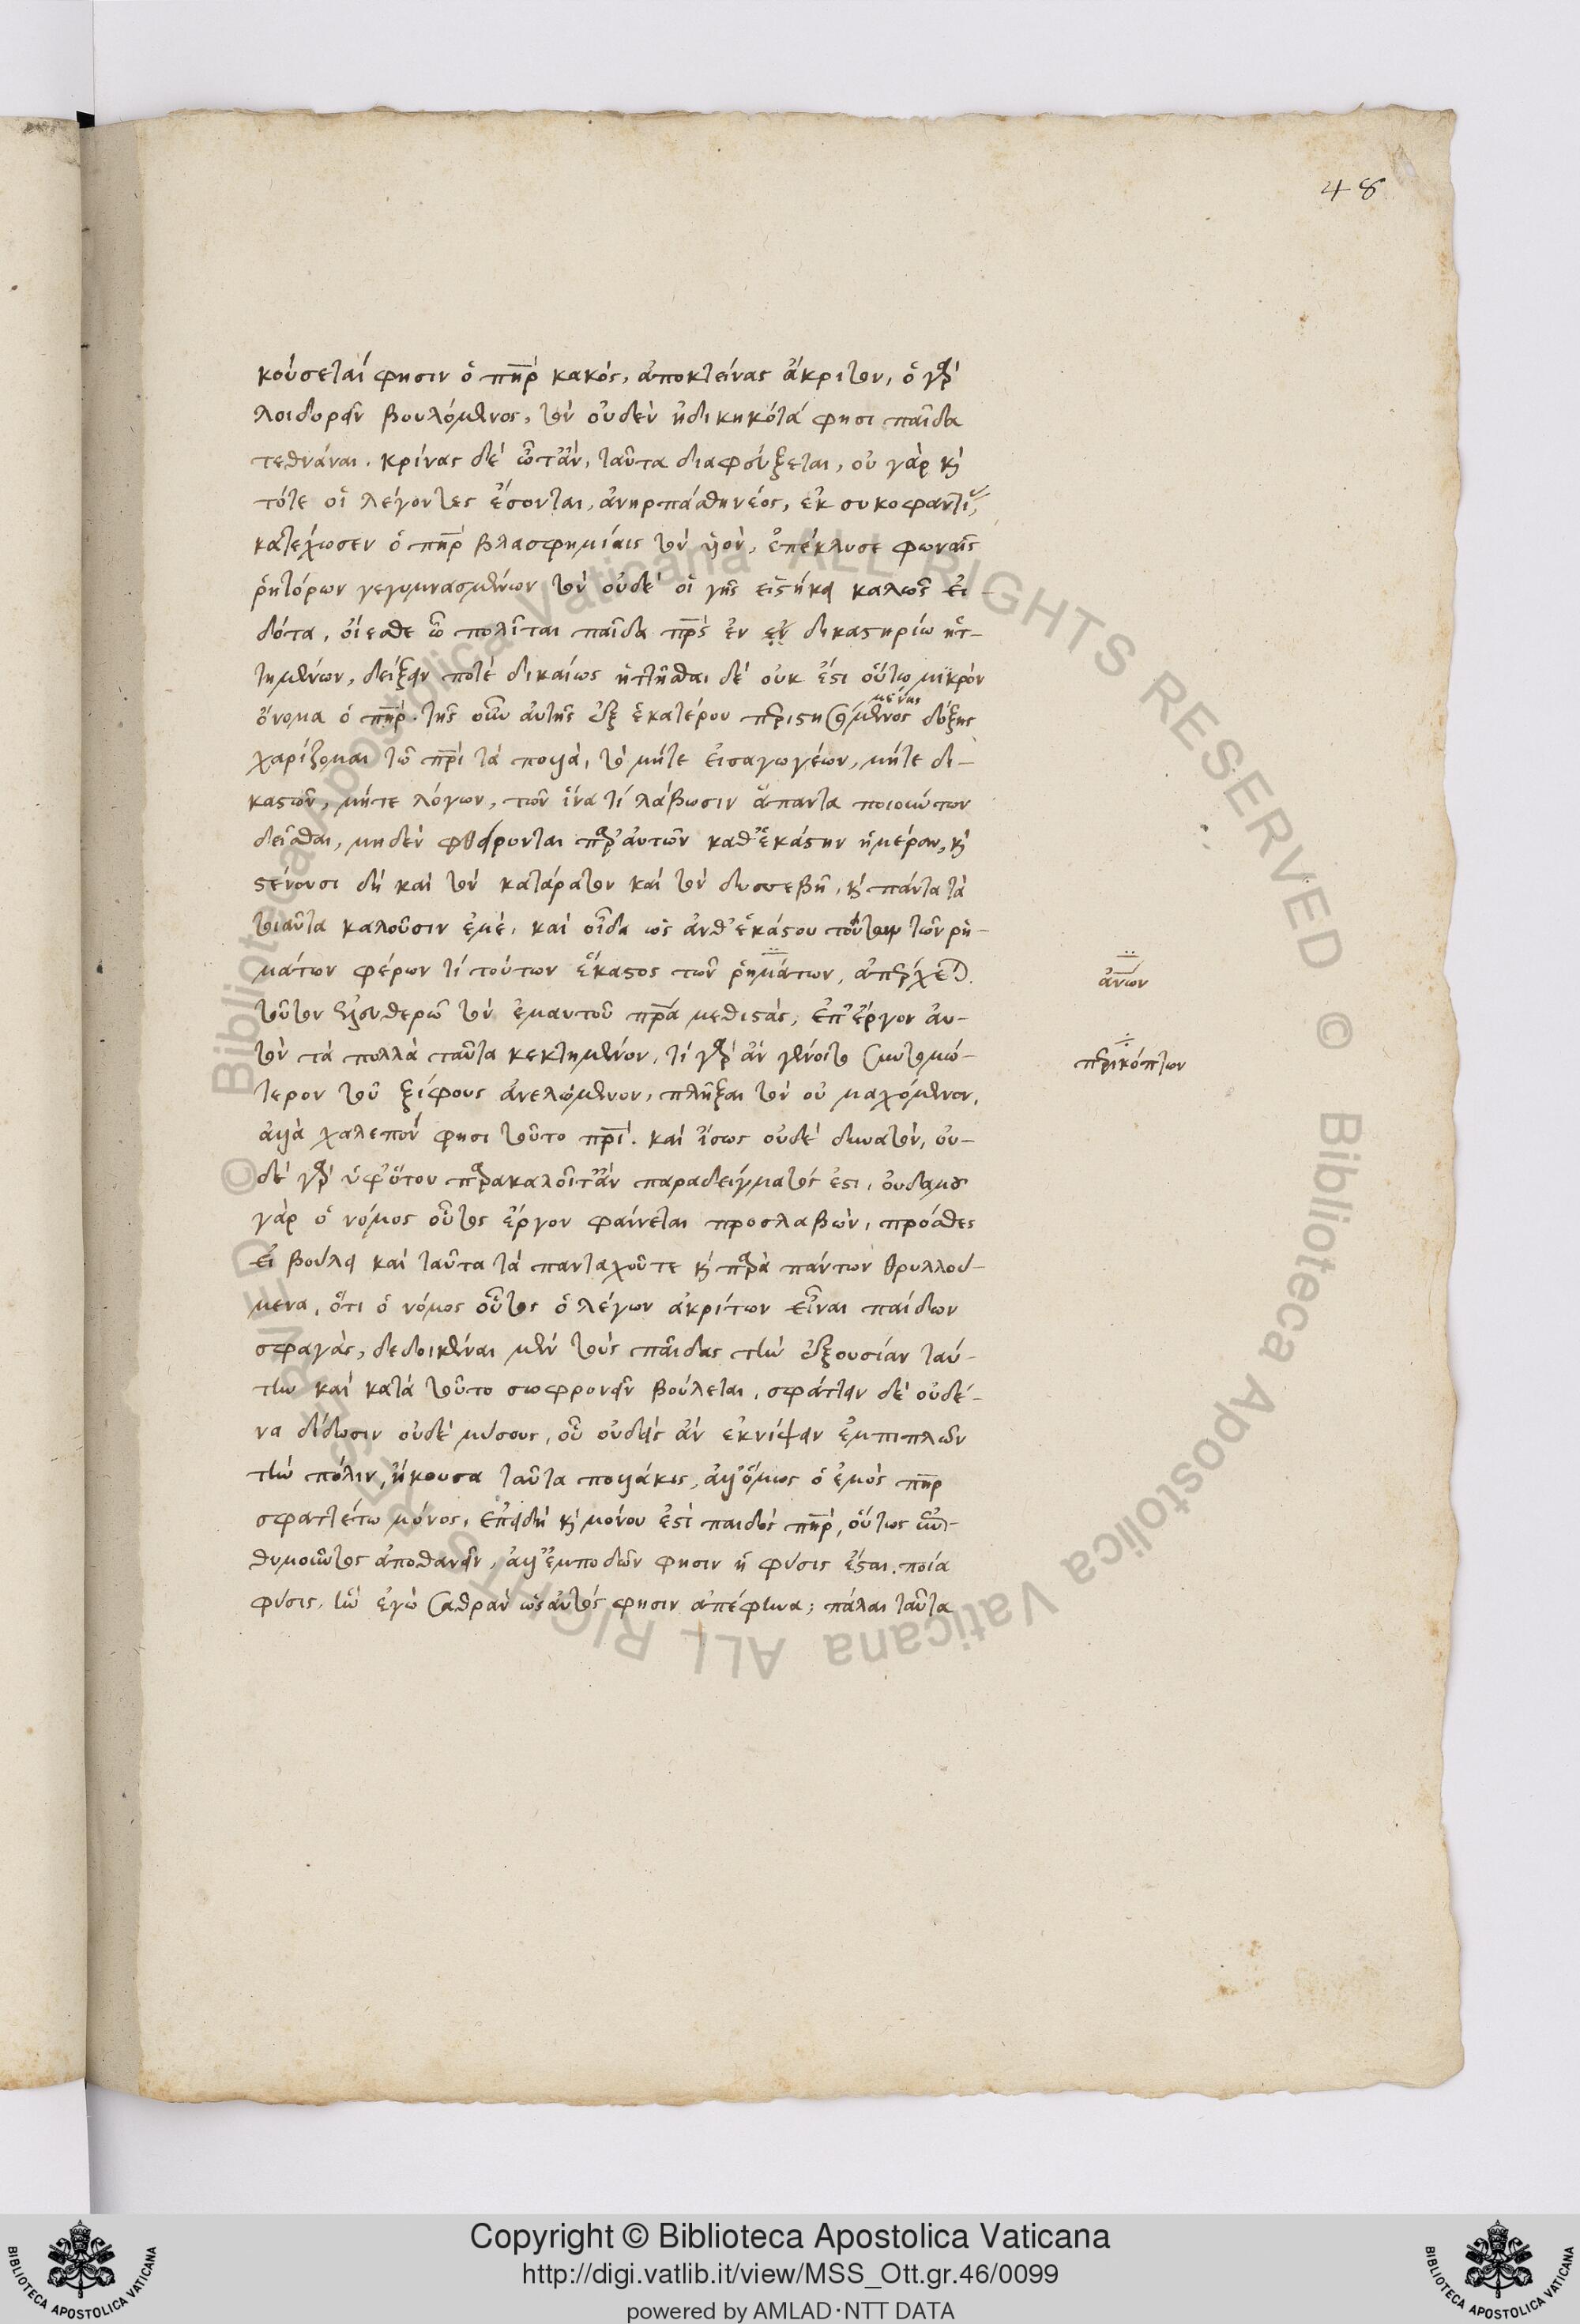 48
κούσεταί φησιν ὁ πηρ κακός, ἀποκτείνας ἄκριτον, ὁ γὰρ
λοιδορεῖν βουλόμενος, τὸν οὐδὲν ἠδικηκότα φησι παῖδα
τεθνάναι. κρίνας δὲ ὦτἂν, ταῦτα διαφεύξεται, οὐ γὰρ καὶ
τότε οἱ λέγοντες ἔσονται, ἀνηρπάσθη νέος, ἐκ συκοφαντι
κατέχωσεν ὁ πηρ βλασφημίαις τὸν ὑὸν, ἐπέκλυσε φωναῖς
ῥητόρων γεγυμνασμένων τὸν οὐδὲ οἱ γῆς εἱστήκει καλῶς εἰ-
δότα, οἴεσθε ὦ πολῖται παῖδα πρς ἐν δικαστηρίω ἡτ-
τημένων, δείξειν ποτὲ δικαίως ἡττῆσθαι δὲ οὐκ ἔστι οὕτω μικρὸν
ὄνομα ὁ πηρ. τῆς οὖν αὐτῆς ἐξ ἑκατέρου μένης δόξης
χαρίζομαι τῶ πρι τὰ πολλὰ, τὸ μήτε εἰσαγωγέων, μήτε δι-
καστῶν, μήτε λόγων, τῶν ἵνα τί λάβωσιν ἅπαντα ποιούντων
δεῖσθαι, μηδὲν φθείρονται παρ' αὐτῶν καθ' ἑκάστην ἡμέραν, καὶ
στένουσι δὴ καὶ τὸν κατάρατον καὶ τὸν δυσσεβῆ, καὶ πάντα τὰ
τοιαῦτα καλοῦσιν ἐμὲ, καὶ οἶδα ὡς ἀνθ' ἑκάστου τῶν ῥη-
μάτων φέρων τί τούτων ἕκαστος τῶν ῥημάτων, ἀπέρχεται.
ἀνιων
τοῦτον ἐλευθερῶ τὸν ἐμαυτοῦ πρα μεθιστὰς, ἐπ' ἔργον αυ-
τὸν τὰ πολλὰ ταῦτα κεκτημένον, τί γὰρ ἂν γένοιτο συντομώ-
περικόπτων
τερον τοῦ ξίφους ἀνελόμενον, πλῆξαι τὸν οὐ μαχόμενον,
ἀλλὰ χαλεπὸν φησι τοῦτο πρι. καὶ ἴσως οὐδὲ δυνατὸν, οὐ-
δὲ γὰρ ὑφ' ὅτου παρακαλοῖτ' ἂν παραδείγματός ἐστι, οὐδαμοῦ
γὰρ ὁ νόμος οὗτος ἔργον φαίνεται προσλαβὼν, πρόσθες
εἰ βούλει καὶ ταῦτα τὰ πανταχοῦτε καὶ παρὰ πάντων θρυλλού-
μενα, ὅτι ὁ νόμος οὗτος ὁ λέγων ἀκρίτων εἶναι παίδων
σφαγὰς, δεδοικέναι μὲν τοὺς παῖδας τὴν ἐξουσίαν ταύ-
την καὶ κατὰ τοῦτο σωφρονεῖν βούλεται, σφάττειν δὲ οὐδέ-
να δίδωσιν οὐδὲ μύσους, οὗ οὐδεὶς ἂν ἐκνίψειν ἐμπιπλῶν
τὴν πόλιν, ἤκουσα ταῦτα πολλάκις, ἀλλ' ὅμως ὁ ἐμὸς πηρ
σφαττέτω μόνος, ἐπειδὴ καὶ μόνου ἐστὶ παιδὸς πηρ, οὕτως
θυμοῦντος ἀποθανεῖν, ἀλλ' ἐμποδὼν φησιν ἡ φύσις ἔσται. ποία
φύσις, ἣν ἐγὼ σαθρὰν ὡς αὐτός φησιν ἀπέφηνα; πάλαι ταῦτα
Copyright © Biblioteca Apostolica Vaticana
http://digi.vatlib.it/view/MSS_Ott.gr.46/0099
powered by AMLAD·NTT DATA